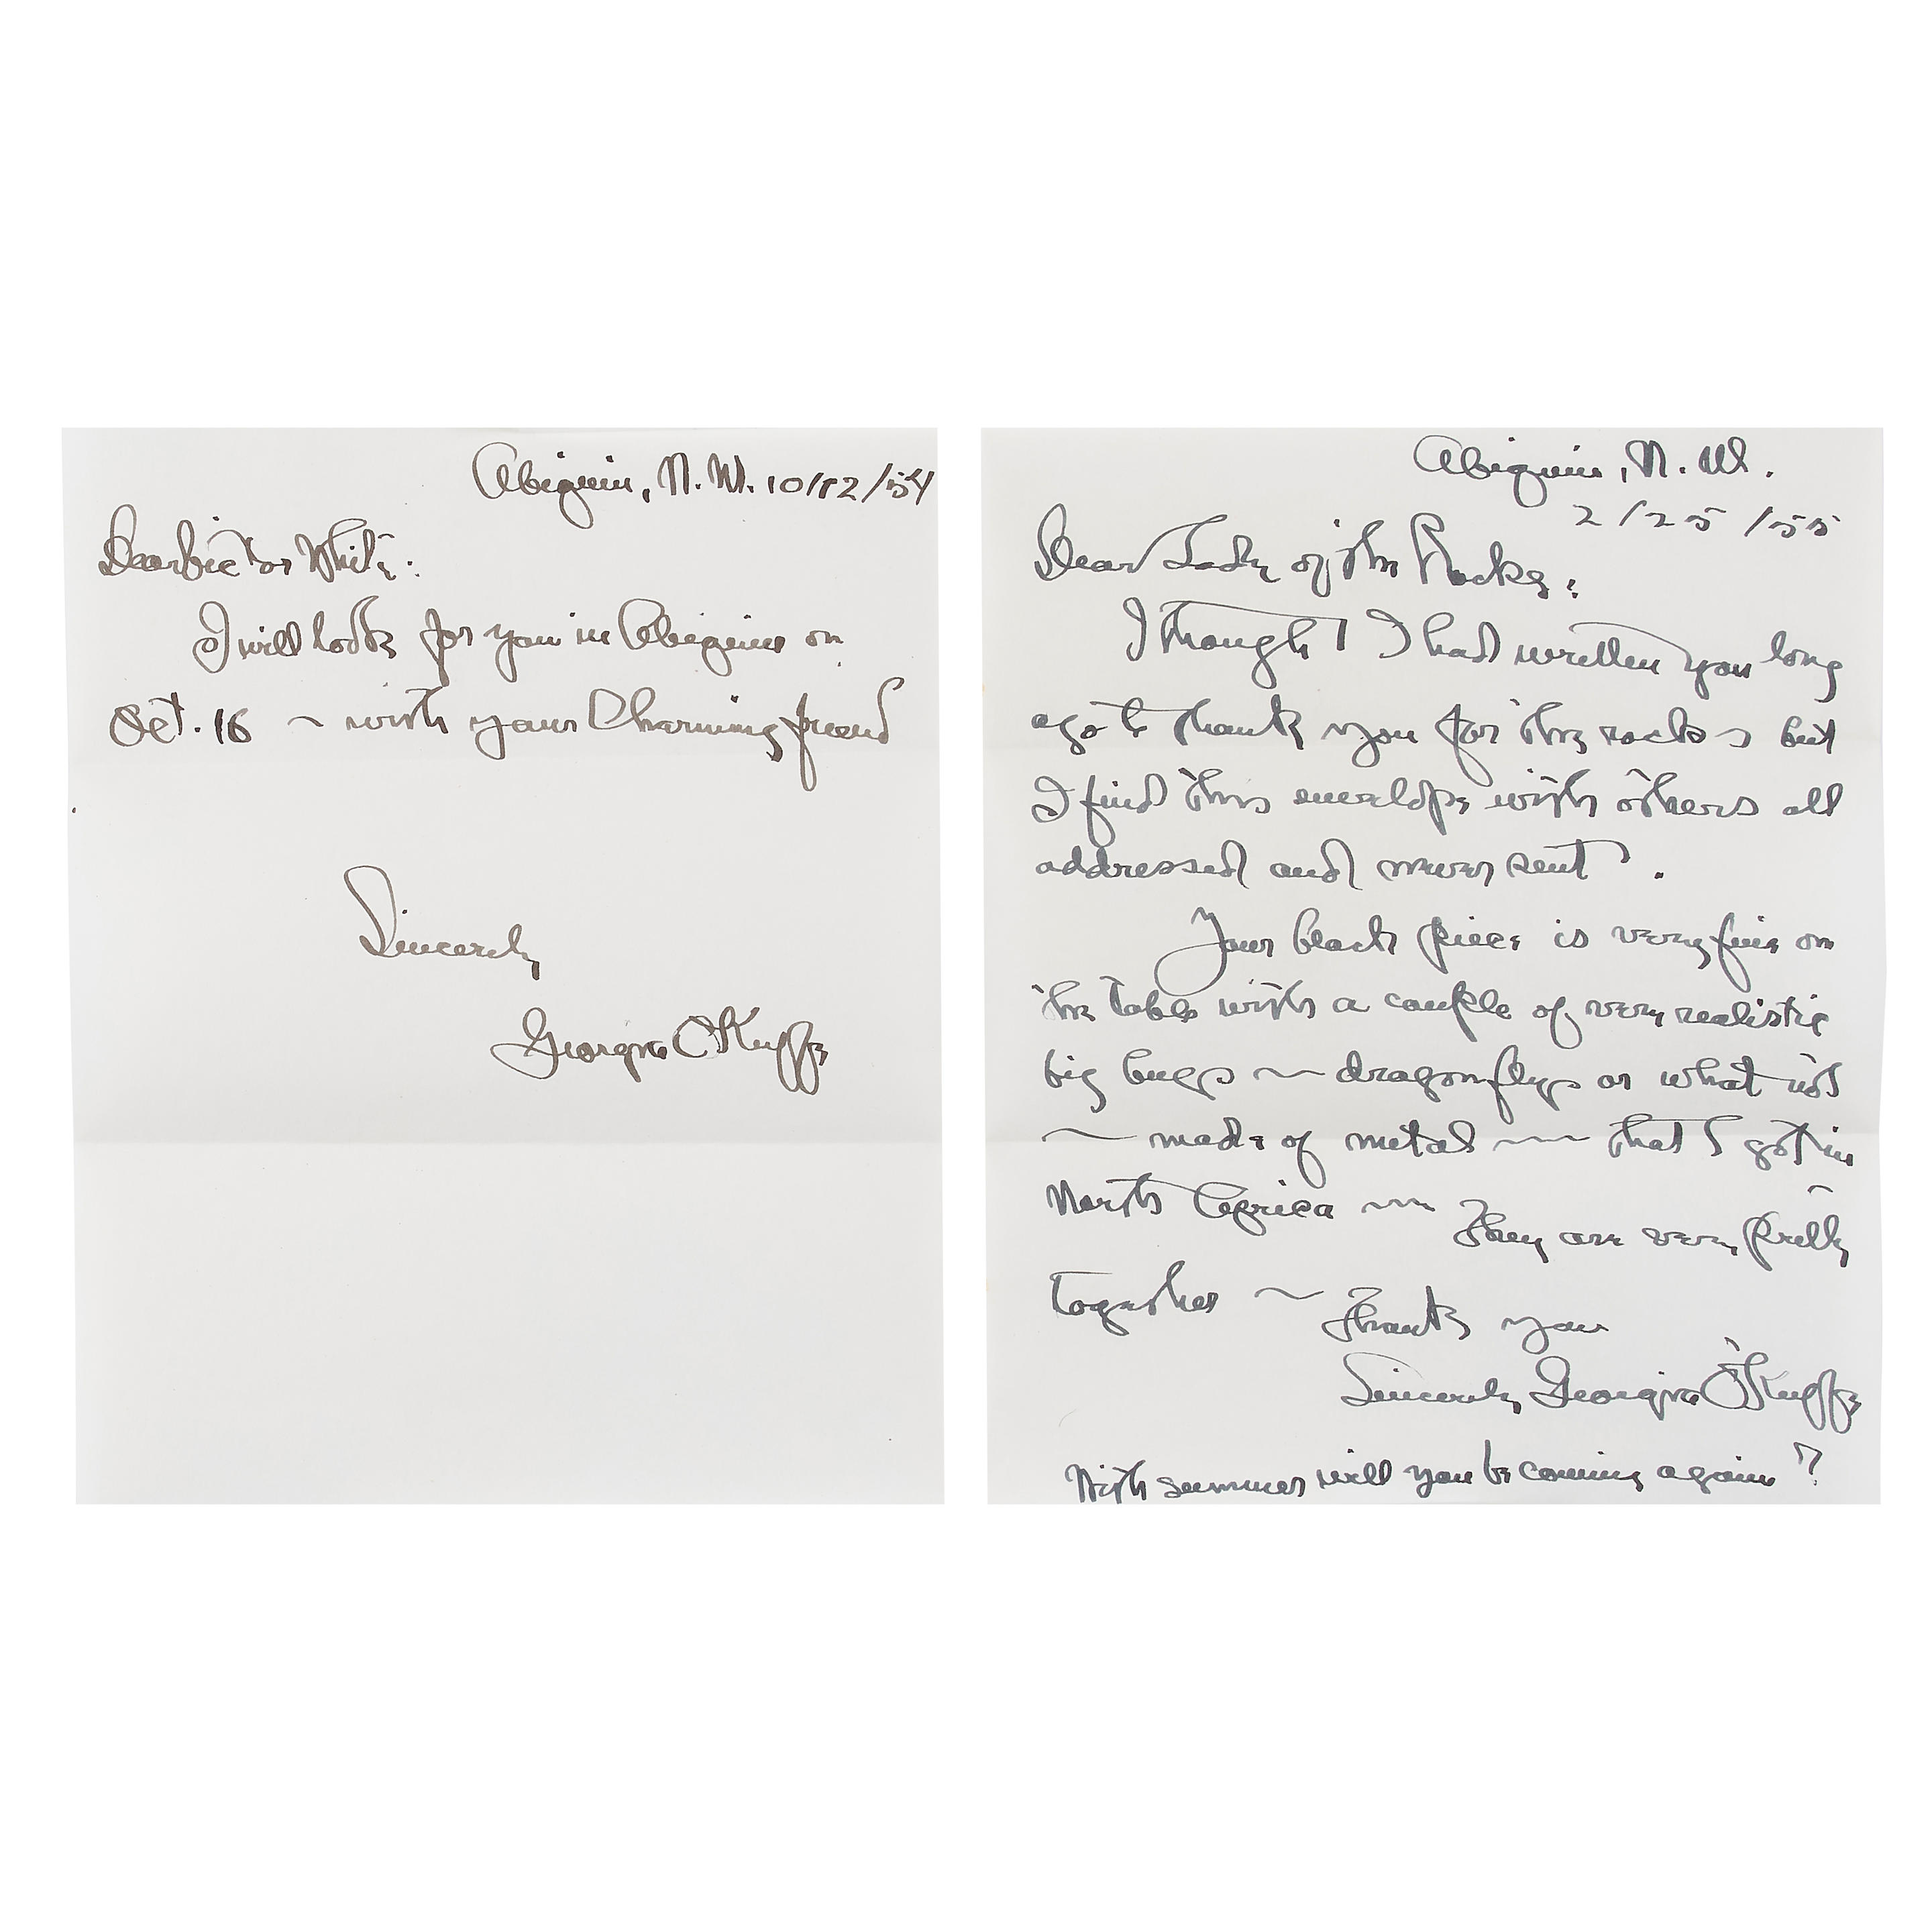 Abiquiu, N.M. 10/12/54
Dear Victor White:
I will look for you in Abiquiu on
Oct. 16 ~ with your charming friend
Sincerely
Georgia O'Keeffe
Abiquiu, N.M.
2/25/55
Dear Lady of the Rocks:
I thought I had written you long
ago to thank you for the rocks but
I find this envelope with others all
addressed and never sent.
Your black piece is very fine on
the table with a couple of very realistic
big bugs ~ dragonflys or what not
~ made of metal ~ that I got in
North Africa ~ They are very pretty
together ~ Thank you
Sincerely Georgia O'Keeffe
summer will you be coming again?